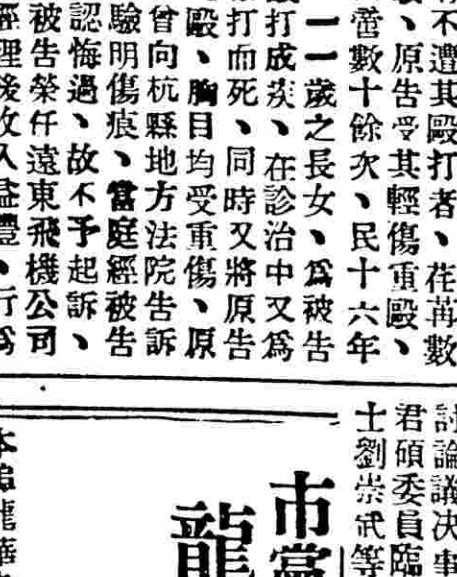 不遭其毆打者、荏苒數
、原告受其輕傷重毆、
嘗數十餘次、民十六年
一一歲之長女、爲被告
打成疾、在診治中又爲
打而死、同時又將原告
毆、胸目均受重傷、原
曾向杭縣地方法院告訴
驗明傷痕、當庭經被告
認悔過、故不予起訴、
被告榮任遠東飛機公司
經理後收入益豐、行爲
討論議决事
君碩委員臨
士劉崇武等
市黨
龍
本埠龍華